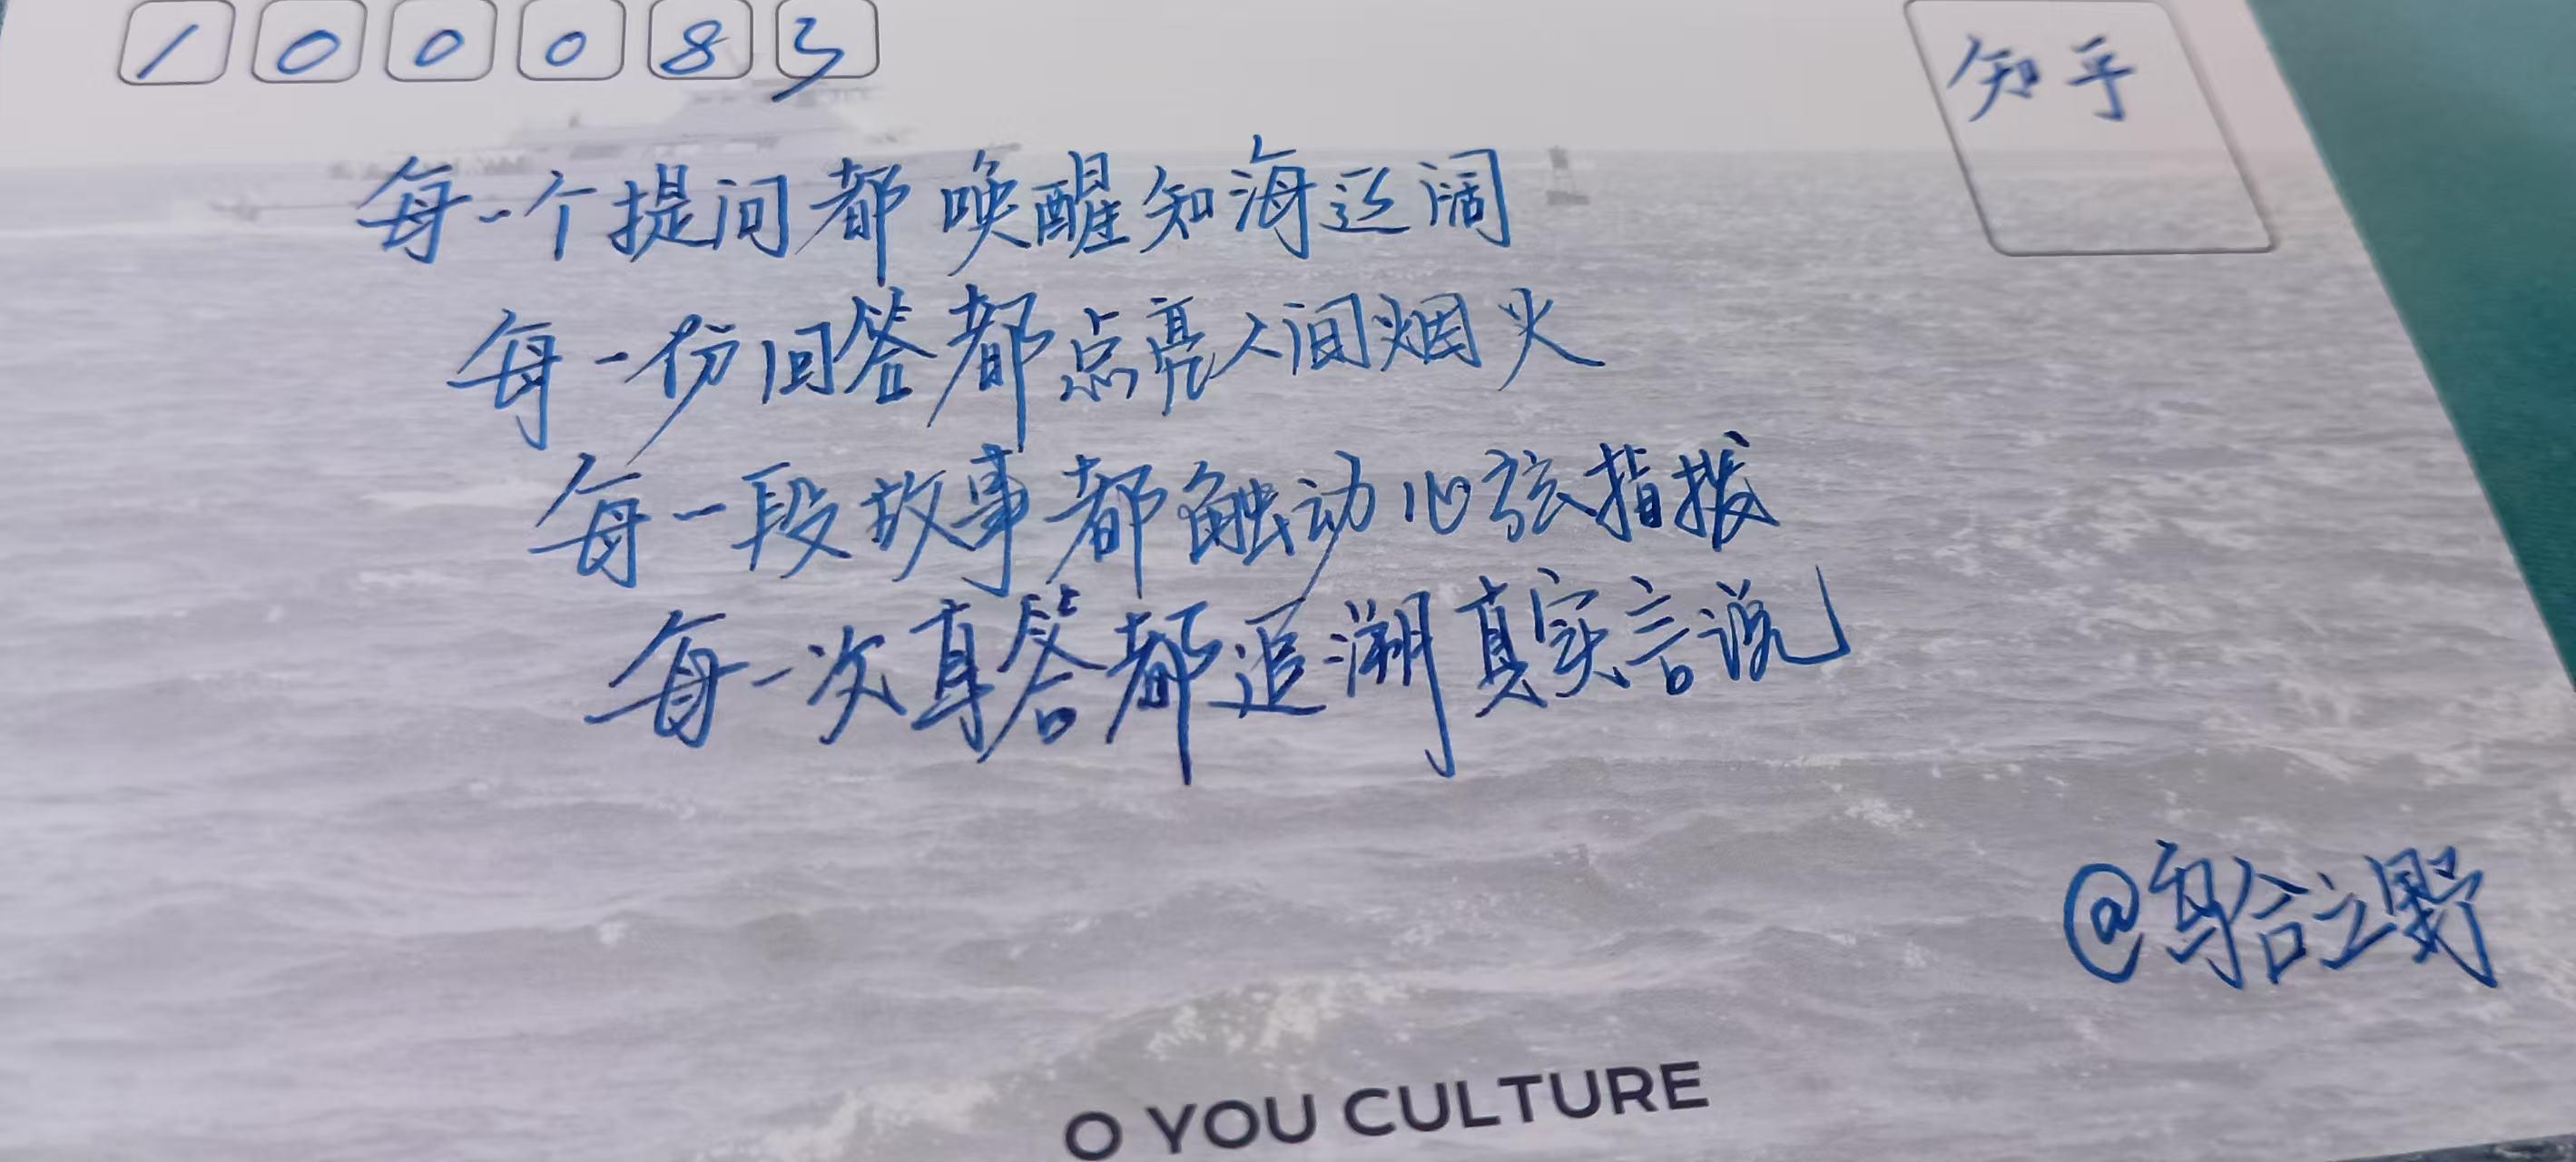 100083
知乎
每一个提问都唤醒知海辽阔
每一份回答都点亮人间烟火
每一段故事都触动心弦指拨
每一次真答都追溯真实言说
@乌合之野
O YOU CULTURE